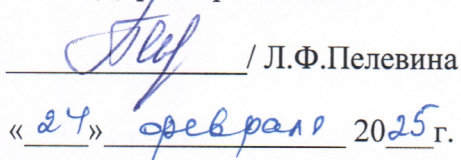 / Л.Ф.Пелевина
«24» февраля 2025г.